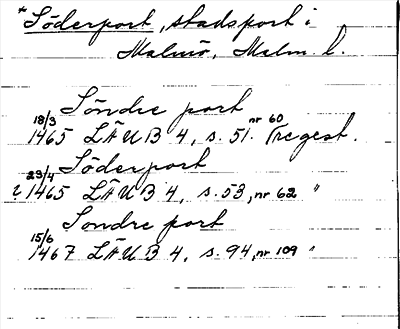 * Söderport, stadsport i
Malmö, Malm. l.
Söndre port
18/3 1465 LÄUB 4, s. 51. nr 60 (regest.
Söderport
? 23/4 1465 LÄUB 4, s. 53, nr 62 "
Sondre port
15/6 1467 LÄUB 4, s. 94, nr 109 "